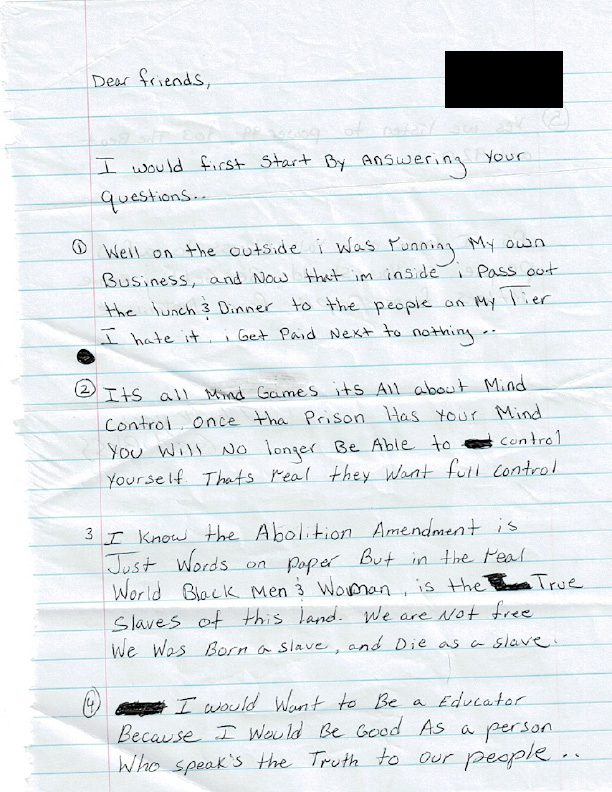 Dear friends,
I would first Start By Answering Your
questions..
① Well on the outside i Was running My own
Business, and Now that im inside i Pass out
the lunch & Dinner to the people on My Tier
I hate it. i Get Paid Next to nothing..
② Its all Mind Games its All about Mind
Control. Once tha Prison Has Your Mind
You Will No longer Be Able to control
Yourself Thats real they Want full control
3 I Know the Abolition Amendment is
Just Words on paper But in the real
World Black Men & Woman, is the True
Slaves of this land. We are Not free
We Was Born a slave, and Die as a slave.
④ I would Want to Be a Educator
Because I Would Be Good As a person
Who speak's the Truth to our people..